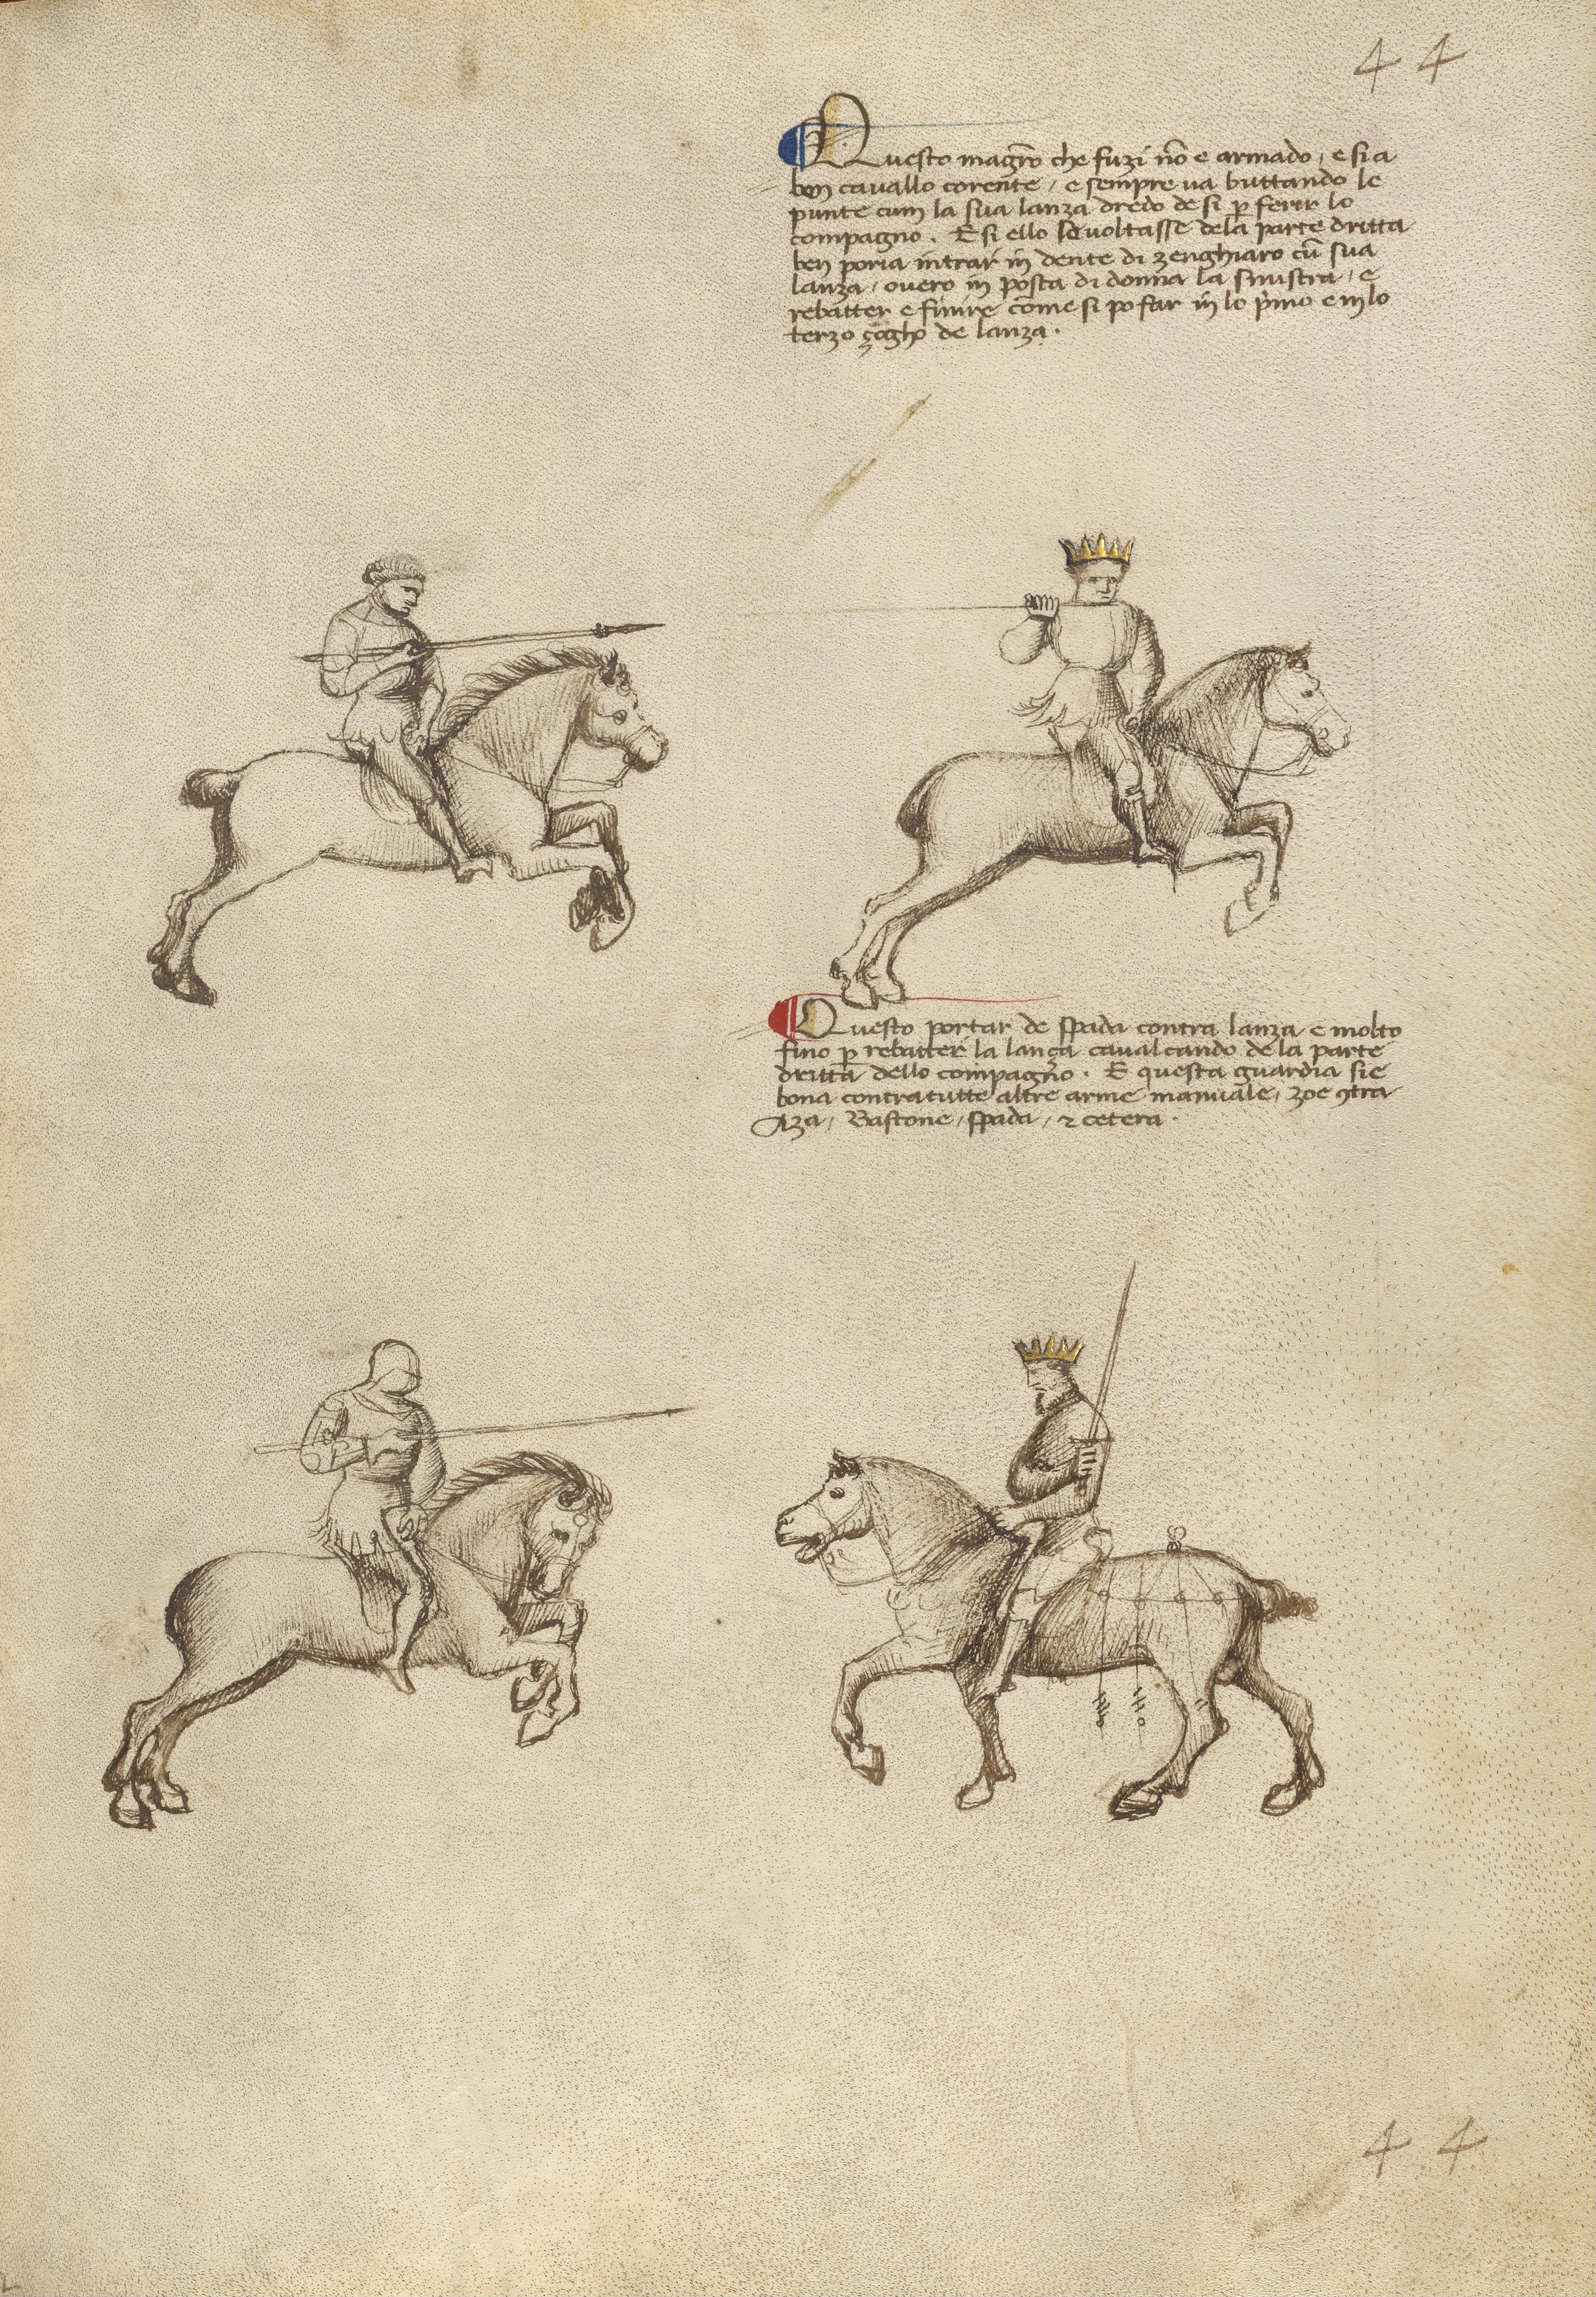 4 4
Questo magrõ che fuzi nõ e armado, e si a
ben cauallo corente, e sempre ua buttando le
punte cum la sua lanza dredo de si ꝑ ferir lo
compagno. E si ello se uoltasse dela parte dritta
ben poria intrar in dente di zenghiaro cũ sua
lanza, ouero in posta di donna la sinistra, e
rebatter e finire come si po far in lo p̃mo e in lo
terzo çogho de lanza.
Questo portar de spada contra lanza e molto
fino ꝑ rebatter la lança caualcando de la parte
dritta dello compagno. E questa guardia sie
bona contra tutte altre arme manuale, zoe ꝯtra
Aza, Bastone, spada, ⁊ cetera.
4 4